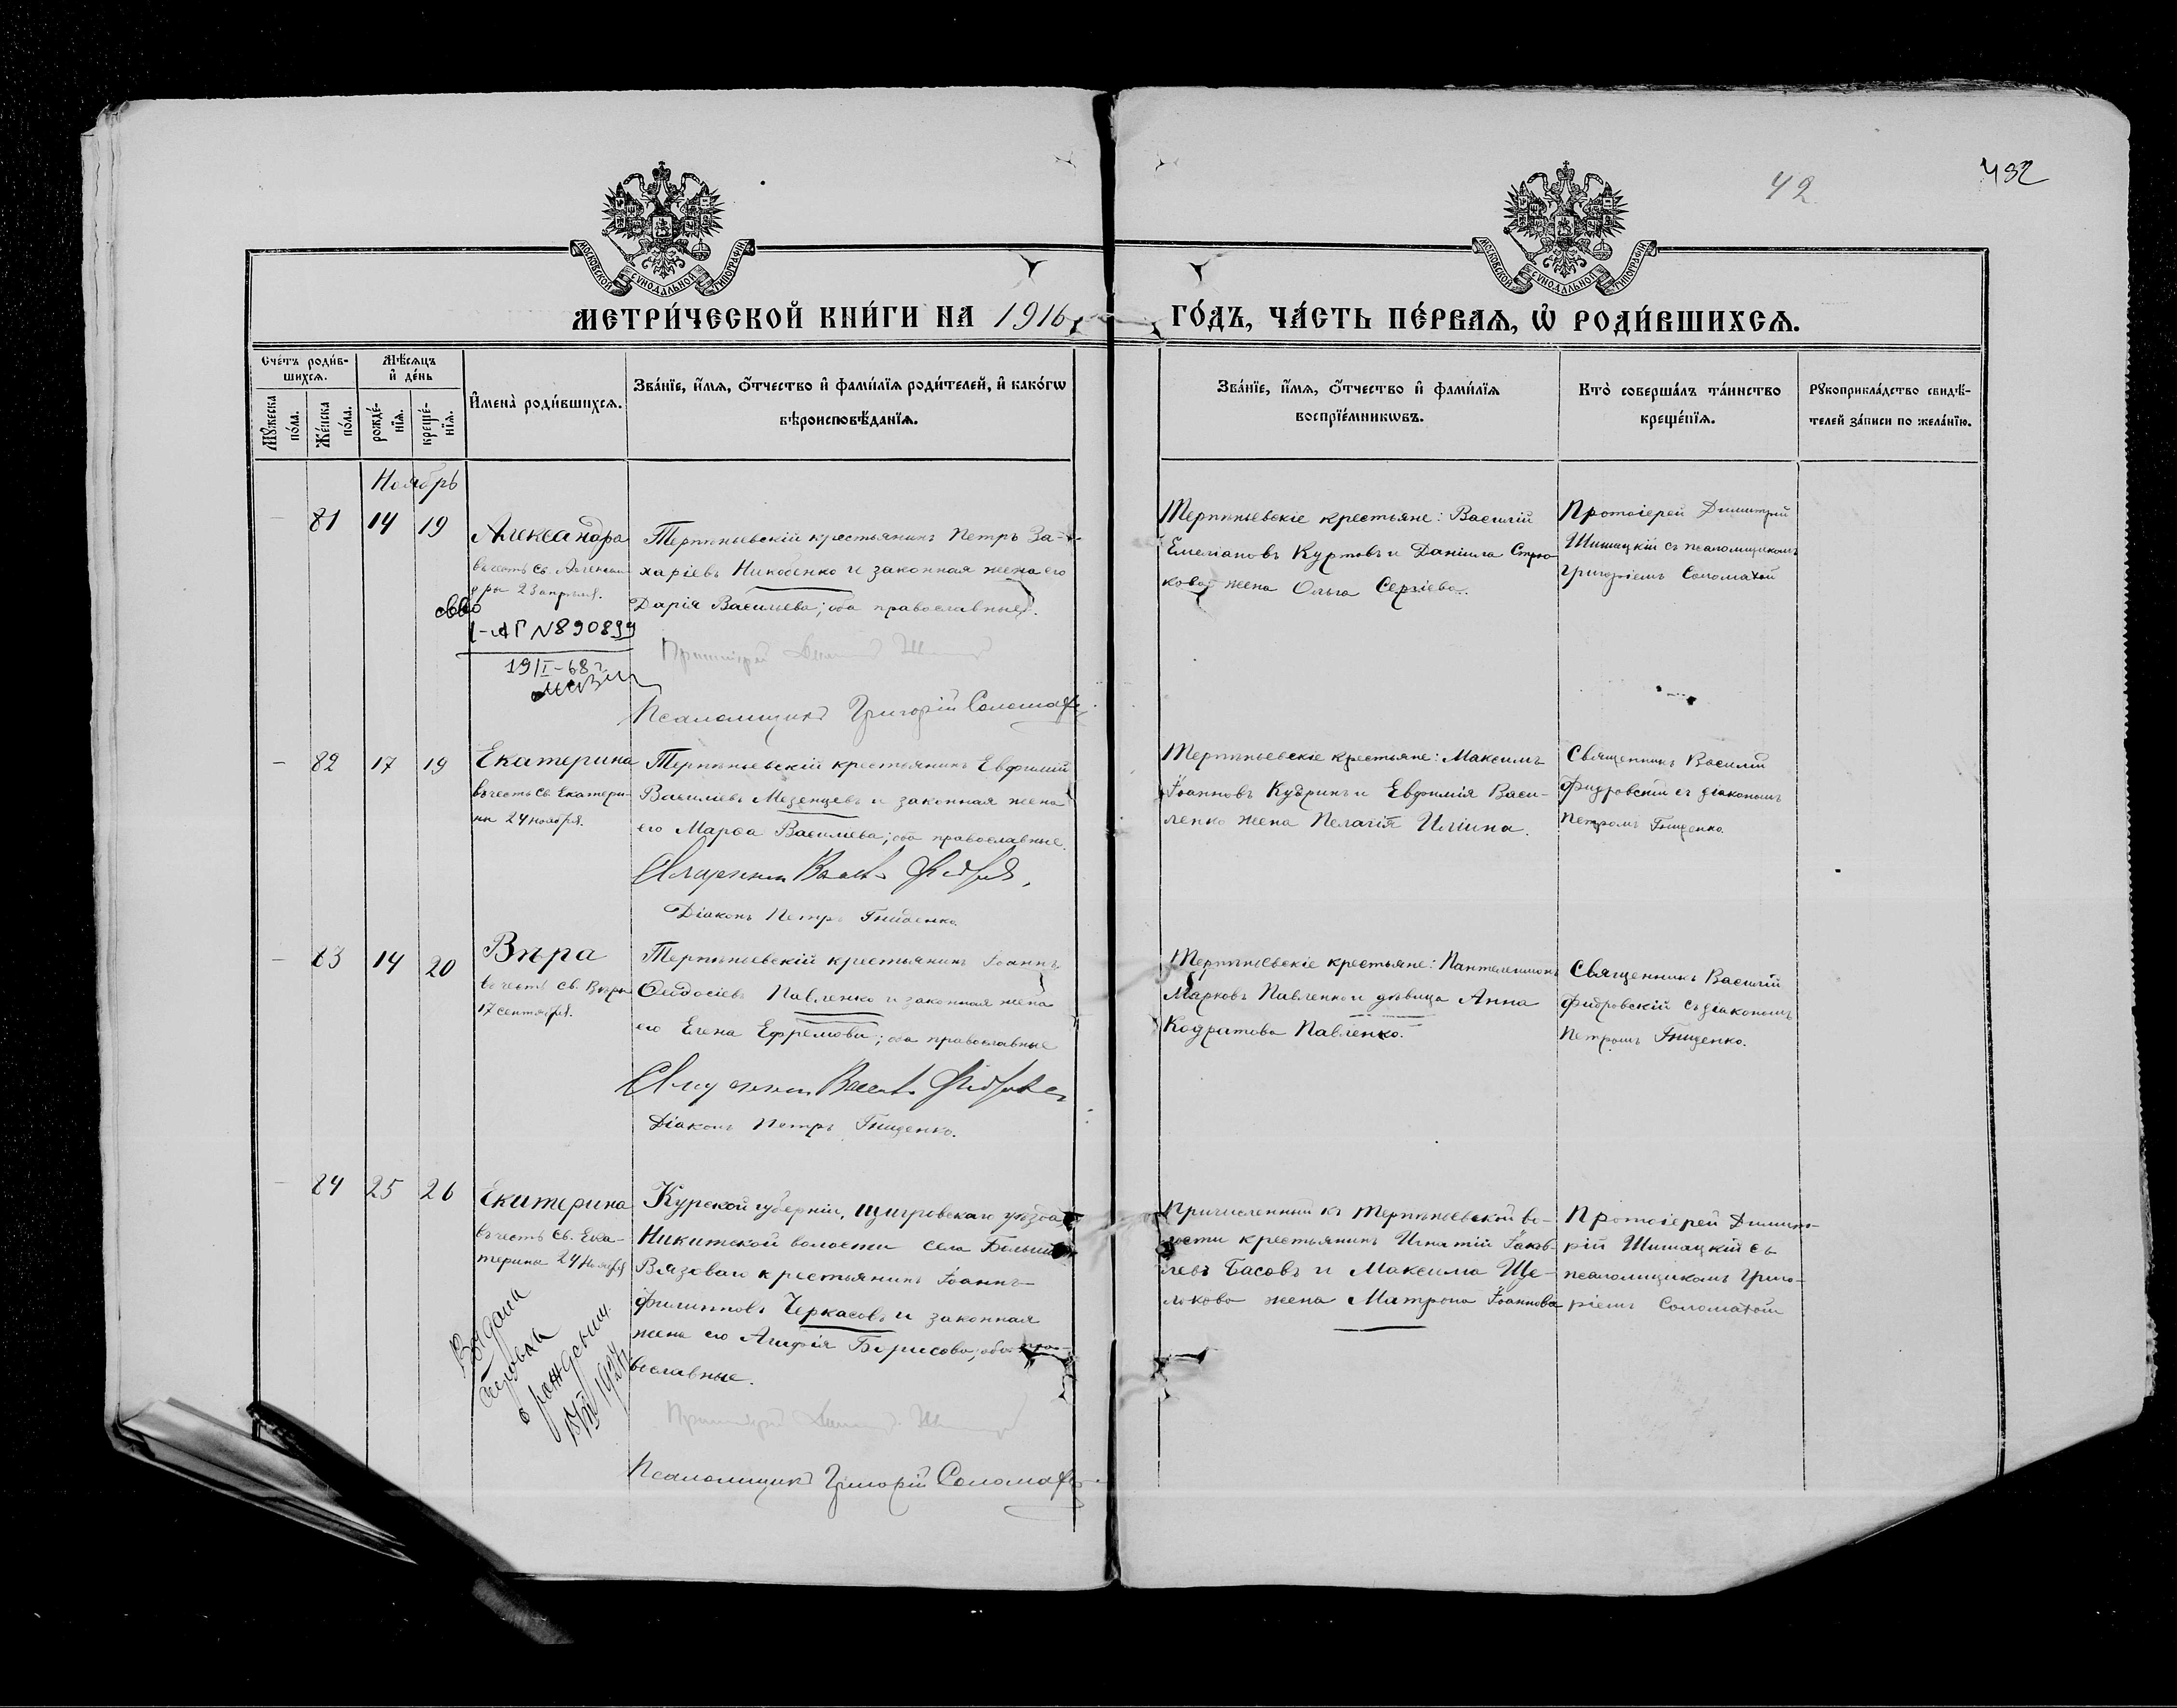 42
432
МОСКОВСКОЙ СѴНОДАЛЬНОЙ ТИПОГРАФІИ
МОСКОВСКОЙ СѴНОДАЛЬНОЙ ТИПОГРАФІИ
МЕТРИ́ЧЕСКОЙ КНИ́ГИ НА 1916
ГО́ДЪ, ЧА́СТЬ ПЕ́РВАѦ, Ѡ҆ РОДИ́ВШИХСѦ.
Сче́тъ роди́в-
шихсѧ.
Мѣ́сѧцъ
и҆ де́нь
Мꙋ́жеска
по́ла.
Же́нска
по́ла.
рожде́-
нїѧ.
креще́-
нїѧ.
И҆мена̀ роди́вшихсѧ.
Зва́нїе, и҆́мѧ, ѻ҆́тчество и҆ фами́лїѧ роди́телей, и҆ како́гѡ
вѣроисповѣ́данїѧ.
Зва́нїе, и҆́мѧ, ѻ҆́тчество и҆ фами́лїѧ
воспрїе́мникѡвъ.
Кто̀ соверша́лъ та́инство
креще́нїѧ.
Рꙋкоприкла́дство свидѣ́-
телей за́писи по жела́нїю.
Ноябрь
81 14 19
Александра
въ честь св. Александ-
ры 23 апрѣля.
свво
I-АГ N 890899
19/I-68 г.
Терпѣньевскій крестьянинъ Петръ За-
харіевъ Никоненко и законная жена его
Дарія Васильева; оба православные.
Протоіерей Димитрій
Псаломщикъ Григорій Соломаха
Терпѣньевскіе крестьяне: Василій
Емеліановъ Куртовъ и Даніила Стрю-
кова жена Ольга Сергіева.
Протоіерей Димитрій
Шишацкій съ псаломщикомъ
Григоріемъ Соломахой
— 82 17 19
Екатерина
въ честь св. Екатери-
ны 24 ноября.
Терпѣньевскій крестьянинъ Евфимій
Василіевъ Мезенцевъ и законная жена
его Марѳа Васильева; оба православные.
Священникъ Василій
Діаконъ Петръ Гниденко.
Терпѣньевскіе крестьяне: Максимъ
Іоанновъ Кудринъ и Евфимія Васи-
ленко жена Пелагія Иліина.
Священникъ Василій
Фидровскій съ діакономъ
Петромъ Гниденко.
— 83 14 20
Вѣра
въ честь св. Вѣры
17 сентября.
Терпѣньевскій крестьянинъ Іоаннъ
Ѳеодосіевъ Павленко и законная жена
его Елена Ефремова; оба православные
Священникъ Василій
Діаконъ Петръ Гниденко.
Терпѣньевскіе крестьяне: Пантелеимонъ
Марковъ Павленко и дѣвица Анна
Кодратова Павленко.
Священникъ Василій
Фидровскій съ діакономъ
Петромъ Гниденко.
— 84 25 26
Екатерина
въ честь св. Ека-
терины 24 ноября
Выдана
справка
о рожденіи
1927
Курской губерніи, Щигровскаго уѣзда
Никитской волости села Больше-
Вязоваго крестьянинъ Іоаннъ
Филипповъ Черкасовъ и законная
жена его Агафія Борисова; оба пра-
вославные.
Протоіерей Димитрій
Псаломщикъ Григорій Соломаха
Причисленный къ Терпѣньевской во-
лости крестьянинъ Игнатій Іаков-
левъ Басовъ и Максима Ще-
локова жена Матрона Іоаннова
Протоіерей Димит-
рій Шишацкій съ
псаломщикомъ Григо-
ріемъ Соломахой